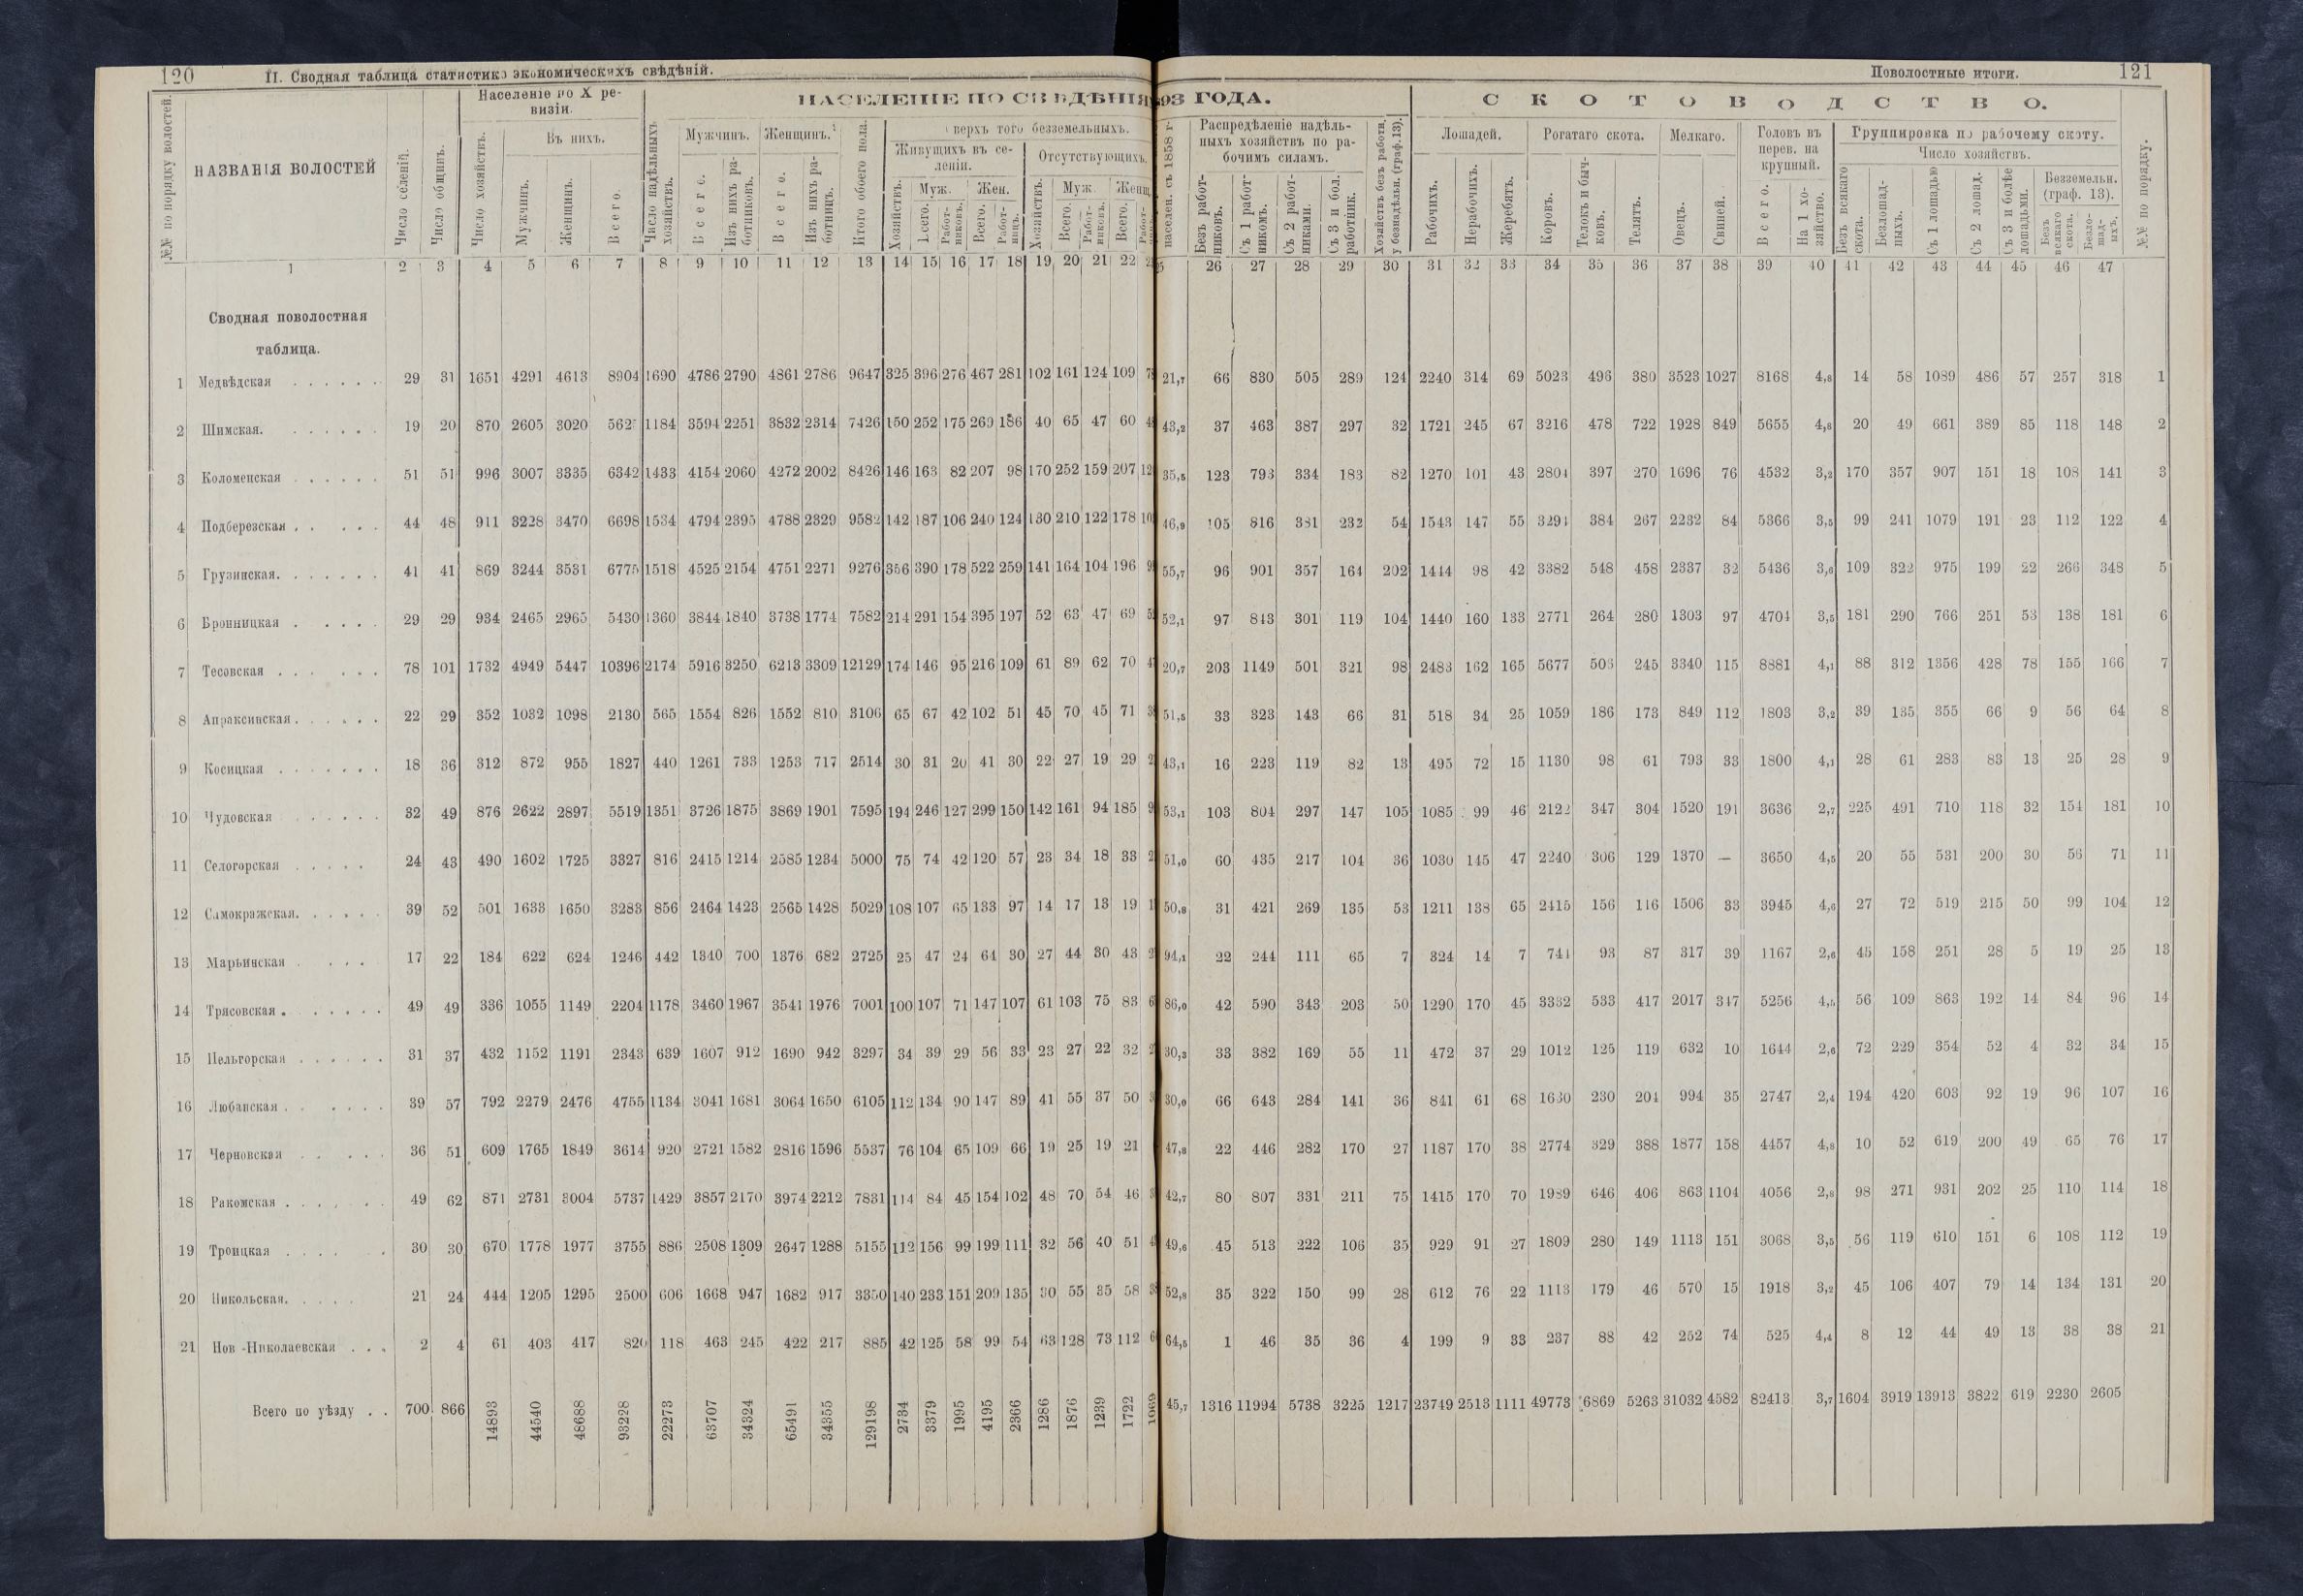 120
II. Сводная таблица статистико экономическихъ свѣдѣній.
Поволостные итоги.
121
№№ по порядку волостей.
НАЗВАНІЯ ВОЛОСТЕЙ
Число селеній.
Число общинъ.
Населеніе по X ре-
визіи.
Число хозяйствъ.
Въ нихъ.
Мужчинъ.
Женщинъ.
Всего.
НАСЕЛЕНІЕ ПО СВѢДѢНІЯ
93 ГОДА.
Число надѣльныхъ
хозяйствъ.
Мужчинъ.
Всего.
Изъ нихъ ра-
ботниковъ.
Женщинъ.
Всего.
Изъ нихъ ра-
ботницъ.
Итого обоего пола.
верхъ того безземельныхъ.
Живущихъ въ се-
леніи.
Хозяйствъ.
Муж.
Всего.
Работ-
никовъ.
Жен.
Всего.
Работ-
ницъ.
Отсутствующихъ.
Хозяйствъ.
Муж.
Всего.
Работ-
никовъ.
Женщ.
Всего.
населен. съ 1858 г.
Распредѣленіе надѣль-
ныхъ хозяйствъ по ра-
бочимъ силамъ.
Безъ работ-
никовъ.
Съ 1 работ-
никомъ.
Съ 2 работ-
никами.
Съ 3 и бол.
работник.
Хозяйствъ безъ работн.
у безнадѣльн. (граф. 13).
СКОТОВОДСТВО.
Лошадей.
Рабочихъ.
Нерабочихъ.
Жеребятъ.
Рогатаго скота.
Коровъ.
Телокъ и быч-
ковъ.
Телятъ.
Мелкаго.
Овецъ.
Свиней.
Головъ въ
перев. на
крупный.
Всего.
На 1 хо-
зяйство.
Группировка по рабочему скоту.
Число хозяйствъ.
Безъ всякаго
скота.
Безлошад-
ныхъ.
Съ 1 лошадью
Съ 2 лошад.
Съ 3 и болѣе
лошадьми.
Безземельн.
(граф. 13).
Безъ
всякаго
скота.
Безло-
шад-
ыхъ.
№№ по порядку.
1 2 3 4 5 6 7 8 9 10 11 12 13 14 15 16 17 18 19 20 21 22 26 27 28 29 30 31 32 33 34 35 36 37 38 39 40 41 42 43 44 45 46 47
Сводная поволостная
таблица.
1 Медвѣдская 29 31 1651 4291 4613 8904 1690 4786 2790 4861 2786 9647 325 396 276 467 281 102 161 124 109 21,7 66 830 505 289 124 2240 314 69 5023 496 380 3523 1027 8168 4,8 14 58 1089 486 57 257 318 1
2 Шимская. 19 20 870 2605 3020 1184 3594 2251 3832 2314 7426 150 252 175 269 186 40 65 47 60 43,2 37 463 387 297 32 1721 245 67 3216 478 722 1928 849 5655 4,8 20 49 661 389 85 118 148 2
3 Коломенская 51 51 996 3007 3335 6342 1433 4154 2060 4272 2002 8426 146 163 82 207 98 170 252 159 207 35,5 123 793 334 183 82 1270 101 43 2804 397 270 1696 76 4532 3,2 170 357 907 151 18 108 141 3
4 Подберезская 44 48 911 3228 3470 6698 1534 4794 2395 4788 2329 9582 142 187 106 240 124 130 210 122 178 46,9 105 816 381 232 54 1543 147 55 3291 384 267 2232 84 5366 3,5 99 241 1079 191 23 112 122 4
5 Грузинская. 41 41 869 3244 3531 6775 1518 4525 2154 4751 2271 9276 356 390 178 522 259 141 164 104 196 55,7 96 901 357 164 202 1444 98 42 3382 548 458 2337 32 5436 3,6 109 322 975 199 22 266 348 5
6 Бронницкая 29 29 934 2465 2965 5430 1360 3844 1840 3738 1774 7582 214 291 154 395 197 52 63 47 69 52,1 97 843 301 119 104 1440 160 133 2771 264 280 1303 97 4704 3,5 181 290 766 251 53 138 181 6
7 Тесовская 78 101 1732 4949 5447 10396 2174 5916 3250 6213 3309 12129 174 146 95 216 109 61 89 62 70 20,7 203 1149 501 321 98 2483 162 165 5677 503 245 3340 115 8881 4,1 88 312 1356 428 78 155 166 7
8 Апраксинская 22 29 352 1032 1098 2130 565 1554 826 1552 810 3106 65 67 42 102 51 45 70 45 71 51,5 33 323 143 66 31 518 34 25 1059 186 173 849 112 1803 3,2 39 135 355 66 9 56 64 8
9 Косицкая 18 36 312 872 955 1827 440 1261 733 1253 717 2514 30 31 20 41 30 22 27 19 29 43,1 16 223 119 82 13 495 72 15 1130 98 61 793 33 1800 4,1 28 61 283 83 13 25 28 9
10 Чудовская 32 49 876 2622 2897 5519 1351 3726 1875 3869 1901 7595 194 246 127 299 150 142 161 94 185 53,1 103 804 297 147 105 1085 99 46 2122 347 304 1520 191 3636 2,7 225 491 710 118 32 154 181 10
11 Селогорская 24 43 490 1602 1725 3327 816 2415 1214 2585 1234 5000 75 74 42 120 57 23 34 18 33 51,0 60 435 217 104 36 1030 145 47 2240 306 129 1370 — 3650 4,5 20 55 531 200 30 56 71 11
12 Самокражская. 39 52 501 1633 1650 3283 856 2464 1423 2565 1428 5029 108 107 65 133 97 14 17 13 19 50,8 31 421 269 135 53 1211 138 65 2415 156 116 1506 33 3945 4,6 27 72 519 215 50 99 104 12
13 Марьинская 17 22 184 622 624 1246 442 1340 700 1376 682 2725 25 47 24 64 30 27 44 30 43 94,1 22 244 111 65 7 324 14 7 741 93 87 317 39 1167 2,6 45 158 251 28 5 19 25 13
14 Трясовская 49 49 336 1055 1149 2204 1178 3460 1967 3541 1976 7001 100 107 71 147 107 61 103 75 83 86,0 42 590 343 203 50 1290 170 45 3332 533 417 2017 347 5256 4,5 56 109 863 192 14 84 96 14
15 Пельгорская 31 37 432 1152 1191 2343 639 1607 912 1690 942 3297 34 39 29 56 33 23 27 22 32 30,3 33 382 169 55 11 472 37 29 1012 125 119 632 10 1644 2,6 72 229 354 52 4 32 34 15
16 Любанская 39 57 792 2279 2476 4755 1134 3041 1681 3064 1650 6105 112 134 90 147 89 41 55 37 50 30,0 66 643 284 141 36 841 61 68 1630 230 204 994 35 2747 2,4 194 420 603 92 19 96 107 16
17 Черновская 36 51 609 1765 1849 3614 920 2721 1582 2816 1596 5537 76 104 65 109 66 19 25 19 21 47,8 22 446 282 170 27 1187 170 38 2774 329 388 1877 158 4457 4,8 10 52 619 200 49 65 76 17
18 Ракомская 49 62 871 2731 3004 5737 1429 3857 2170 3974 2212 7831 114 84 45 154 102 48 70 54 46 42,7 80 807 331 211 75 1415 170 70 1989 646 406 863 1104 4056 2,8 98 271 931 202 25 110 114 18
19 Троицкая 30 30 670 1778 1977 3755 886 2508 1309 2647 1288 5155 112 156 99 199 111 32 56 40 51 49,6 45 513 222 106 35 929 91 27 1809 280 149 1113 151 3068 3,5 56 119 610 151 6 108 112 19
20 Никольская. 21 24 444 1205 1295 2500 606 1668 947 1682 917 3350 140 233 151 209 135 30 55 35 58 52,8 35 322 150 99 28 612 76 22 1113 179 46 570 15 1918 3,2 45 106 407 79 14 134 131 20
21 Нов -Николаевская 2 4 61 403 417 820 118 463 245 422 217 885 42 125 58 99 54 63 128 73 112 64,5 1 46 35 36 4 199 9 33 237 88 42 252 74 525 4,4 8 12 44 49 13 38 38 21
Всего по уѣзду . . 700 866 14893 44540 48688 93228 22273 63707 34324 65491 34355 129198 2734 3379 1995 4195 2366 1286 1876 1239 1722 1069 45,7 1316 11994 5738 3225 1217 23749 2513 1111 49773 6869 5263 31032 4582 82413 3,7 1604 3919 13913 3822 619 2230 2605